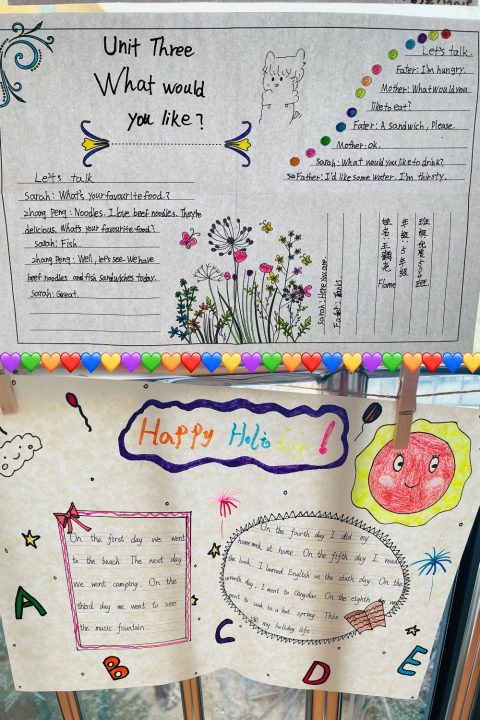 Unit Three
What would
you like?
Let's talk
Sarah: What's your favourite food?
Zhang Peng: Noodles. I love beef noodles. They're
delicious. What's your favourite food?
Sarah: Fish.
Zhang Peng: Well, let's see. We have
beef noodles and fish sandwiches today.
Sarah: Great.
Let's talk.
Fater: I'm hungry.
Mother: What would you
like to eat?
Fater: A sandwich, Please.
Mother: ok.
Sarah: What would you like to drink?
Father: I'd like some water. I'm thirsty.
Sarah: Here you are.
Father: Thanks
姓名:王
Flame
年级:5年级
班级
Happy Holi
!
On the first day we went
to the beach. The next day
we went camping. On the
third day we went to see
the music fountain.
On the fourth day I did my
homework at home. On the fifth day I read
the book. I learned English on the sixth day. On the
seventh day, I went to Qingdao. On the eighth
went to soak in a hot spring. This
my holiday life.
A
B
C
D
E